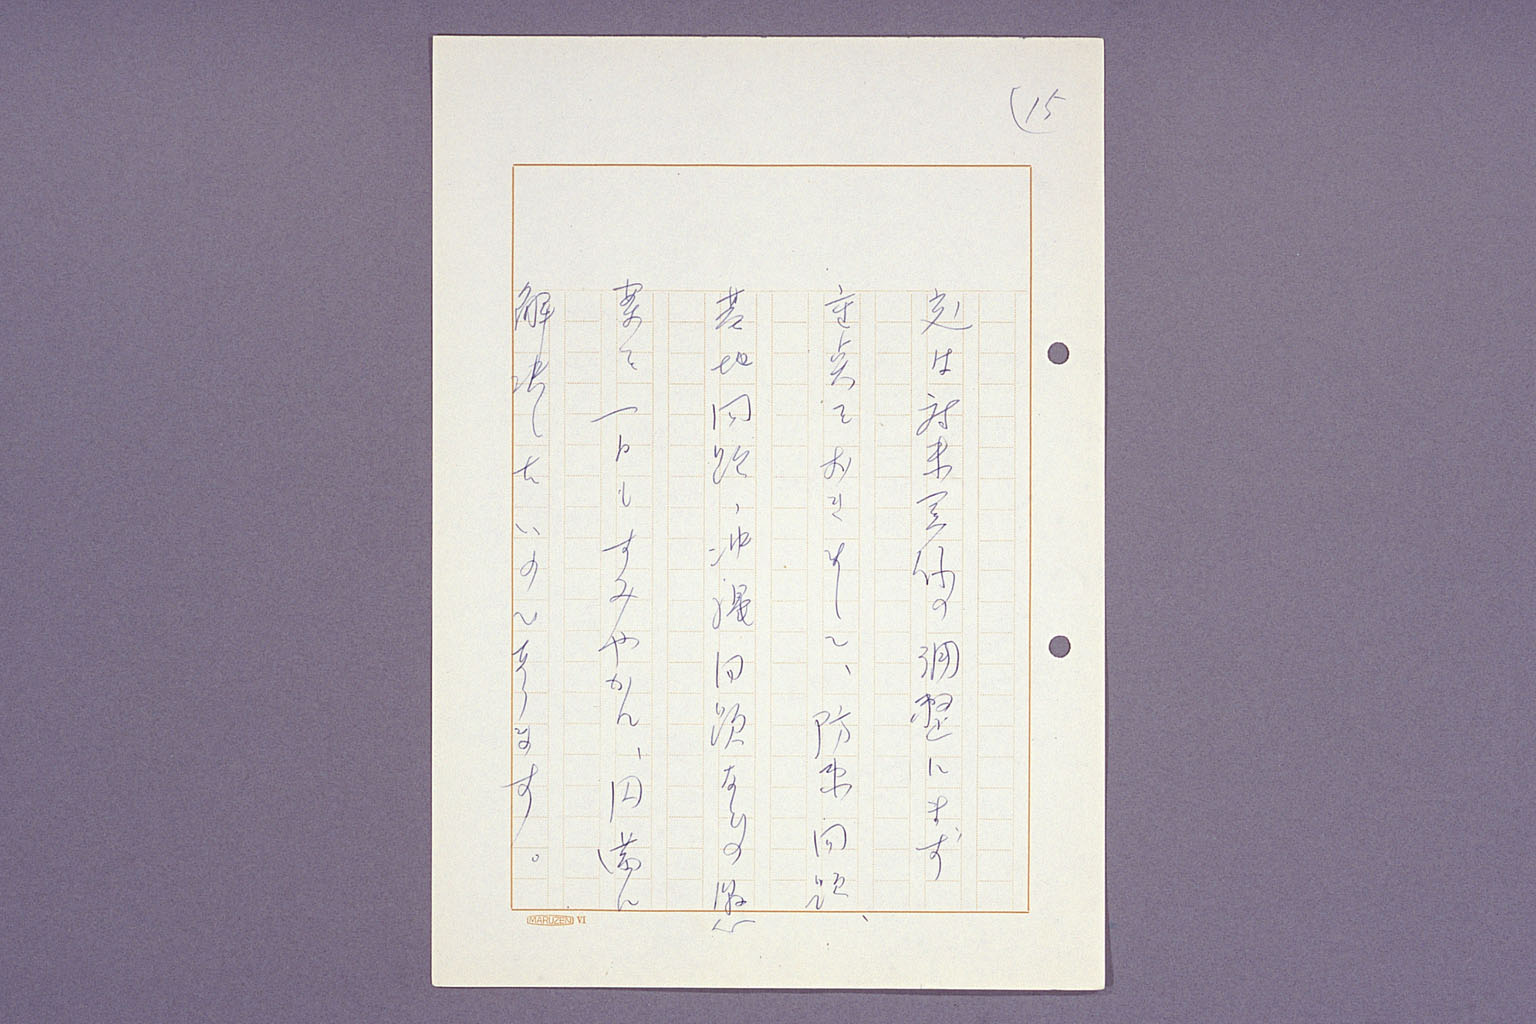 (15
交は対米関係の調整にまず
重点をおきまして、防衛問題、
基地問題、沖縄問題などの懸
案を一日もすみやかに、円満に
解決したいのであります。
MARUZEN VI